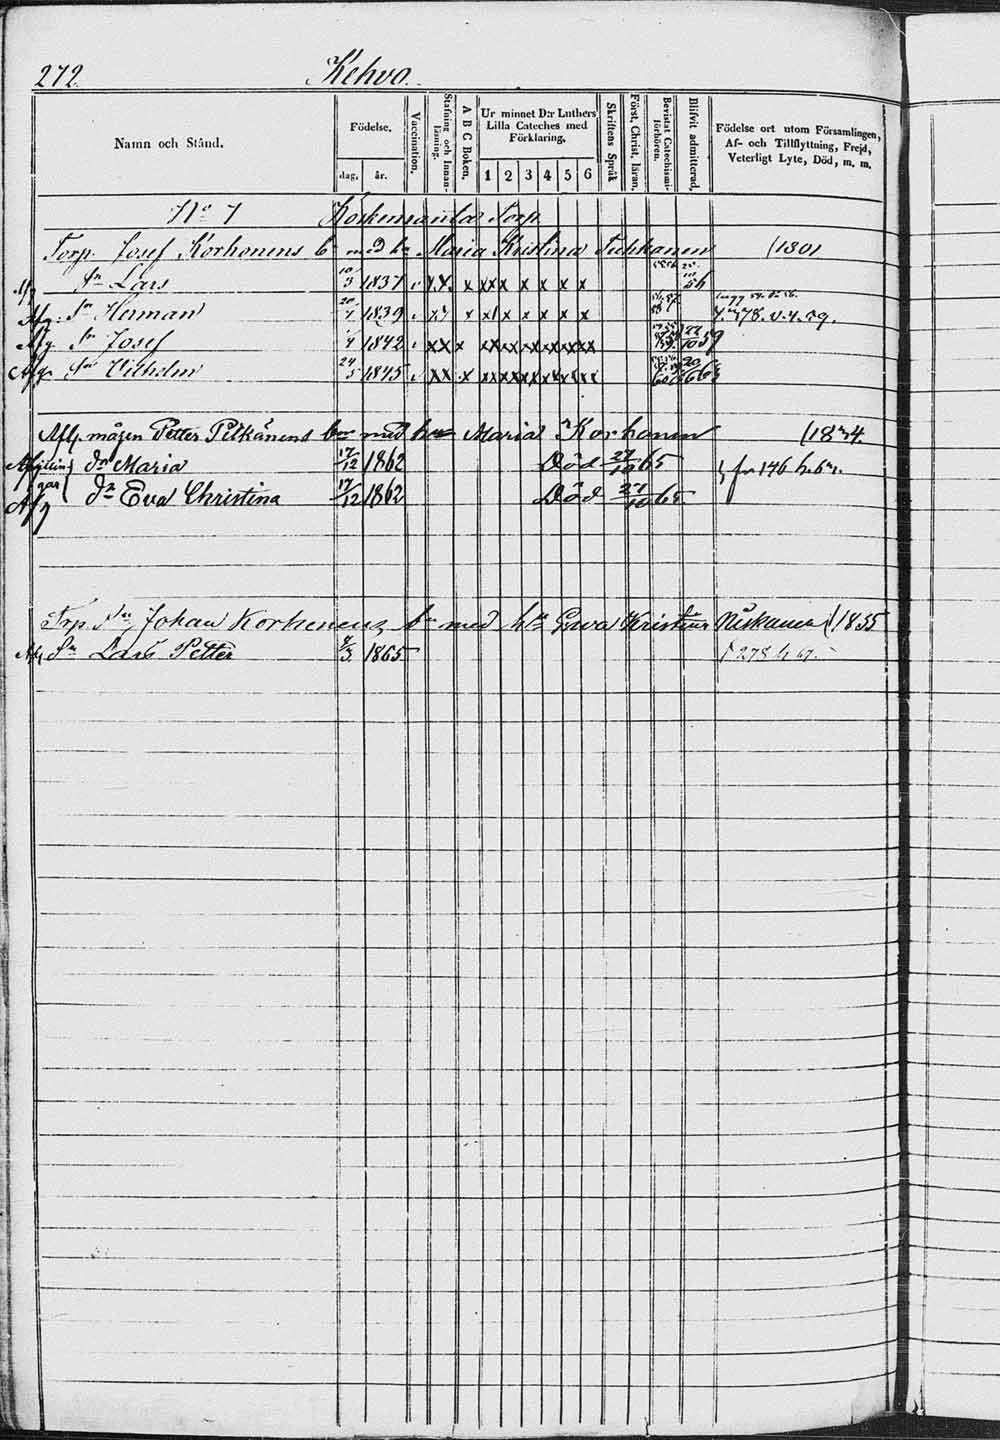 272. Kehvo.
Namn och Stånd.
Födelse.
dag. år.
Vaccination.
Stafning och Innanläsning.
A B C Boken.
Ur minnet D:r Luthers Lilla Cateches med Förklaring.
1 2 3 4 5 6
Skriftens Språk
Först. Christ. läran.
Bevistat Catechismiförhören.
Blifvit admitterad.
Födelse ort utom Församlingen, Af- och Tillflyttning, Frejd, Veterligt Lyte, Död, m. m.
No 7 Torp
Torp. Josef Korhonens bn med hu Maria Kristina Tukkanen (1801
Sn Lars 10/3 1837 v x x x x x x x x x 56
Afg: Sn Herman 20/1 1839 v x x x x x x x
Afg Sn Josef 1842 v x x x x x x x x x 22/10 59
Afg Sn Vilhelm 24/5 1845 v x x x x x x x x x 20/6 63
Aflg. mågen Petter Pitkänens bn med hu Maria Korhonen (1834
Afg tvillingar dr Maria 17/12 1862 Död 27/10 65 fr 146 h.
Afg dr Eva Christina 17/12 1862 Död 27/10 65
Trp Sn Johan Korhonens bn med hu Ewa Kristina Niskanen (1835
Afg Sn Lars Petter 4/3 1865 278 h 67.